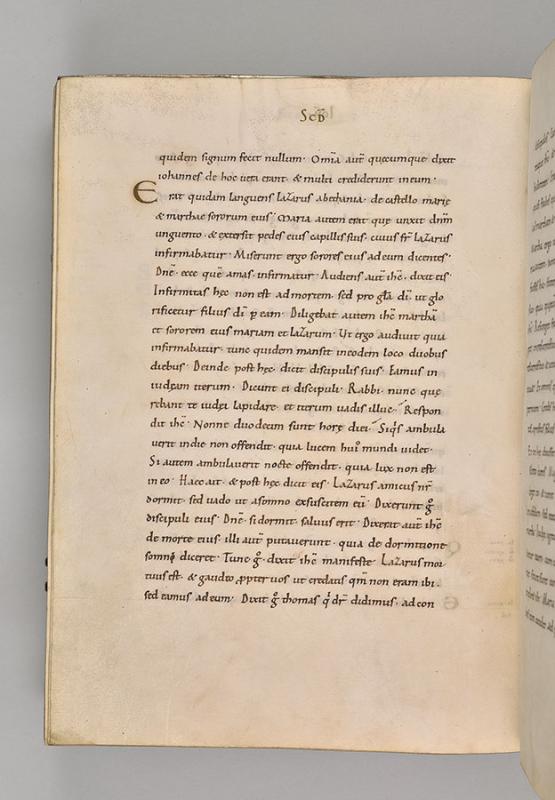 Scđ
quidem signum fecit nullum · Omīa aut̄ quecumque dixit
iohannes de hoc uera erant · & multi crediderunt ineum ·
Erat quidam languens Lazarus abethania · de castello marie
& marthae sororum eius · Maria autem erat que unxit dn̄m
unguento · & extersit pedes eius capillis suis · cuius fr̄ Lazarus
infirmabatur · Miserunt ergo sorores eius ad eum dicentes ·
Dn̄e · ecce quē amas · infirmatur · Audiens aut̄ ih̄c · dixit eis ·
Infirmitas hec non est admortem · sed pro gl̄a dī · ut glo
rificetur filius dī p eam · Diligebat autem ih̄c marthā
et sororem eius mariam et Lazarum · Ut ergo audiuit quia
infirmabatur · tunc quidem mansit ineodem loco duobus
diebus · Deinde post hec · dicit discipulis suis · Eamus in
iudeam iterum · Dicunt ei discipuli · Rabbi · nunc que
rebant te iudei lapidare · et iterum uadis illuc · Respon
dit ih̄c · Nonne duodecim sunt hore diei · Siq̄s ambula
uerit indie non offendit · quia lucem hui᷒ mundi uidet ·
Si autem ambulauerit nocte offendit · quia lux non est
in eo · Haec ait · & post hęc dicit eis · Lazarus amicus nr̄
dormit · sed uado ut asomno exsuscitem eū · Dixerunt g̊
discipuli eius · Dn̄e · si dormit · saluus erit · Dixerat aut̄ ih̄c
de morte eius · illi aut̄ putauerunt · quia de dormitione
somni diceret · Tunc g̊ · dixit ih̄c manifeste · Lazarus mor
tuus est · & gaudeo ꝓpter uos ut credatis qm̄ non eram ibi ·
sed eamus ad eum · Dixit g̊ thomas q̇ dr̄ didimus · ad con